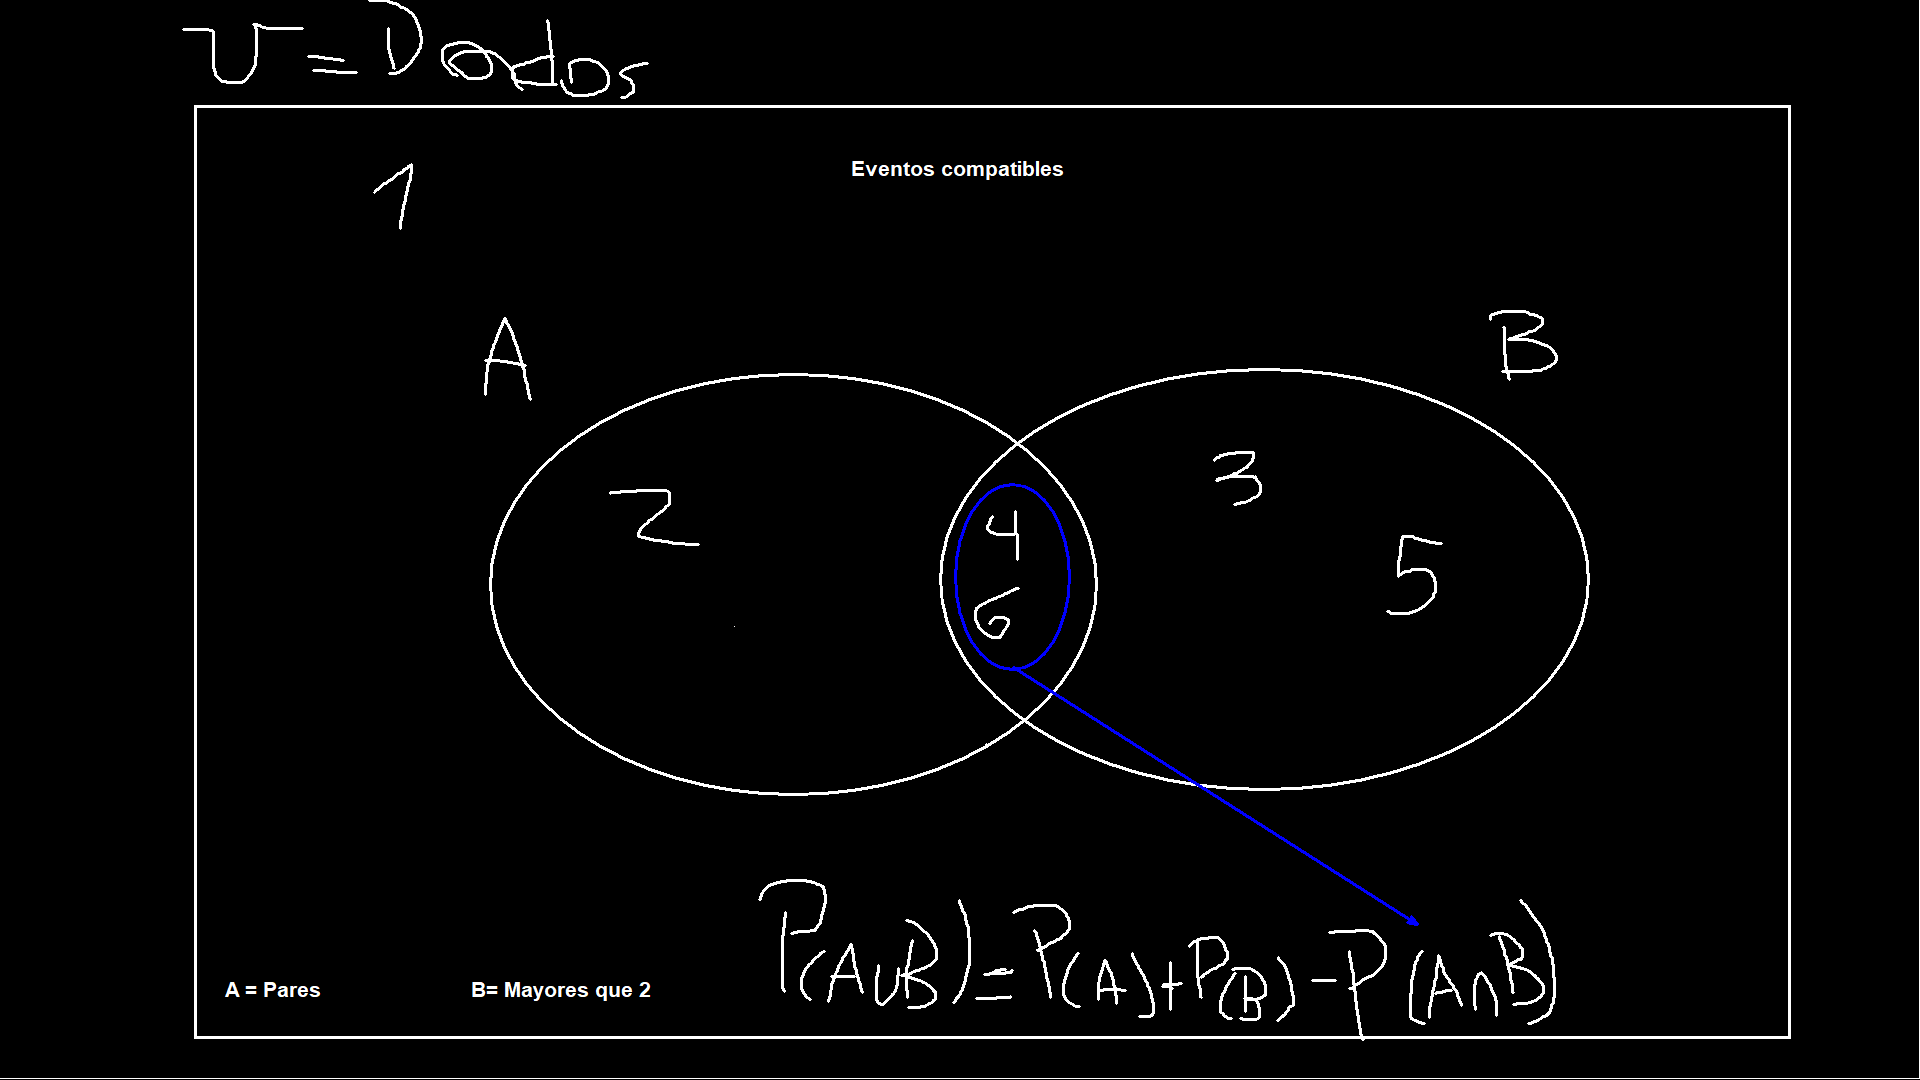 U=Dados
Eventos compatibles
1
A
B
2
3
4
5
6
P(A∪B)=P(A)+P(B)-P(A∩B)
A = Pares
B= Mayores que 2